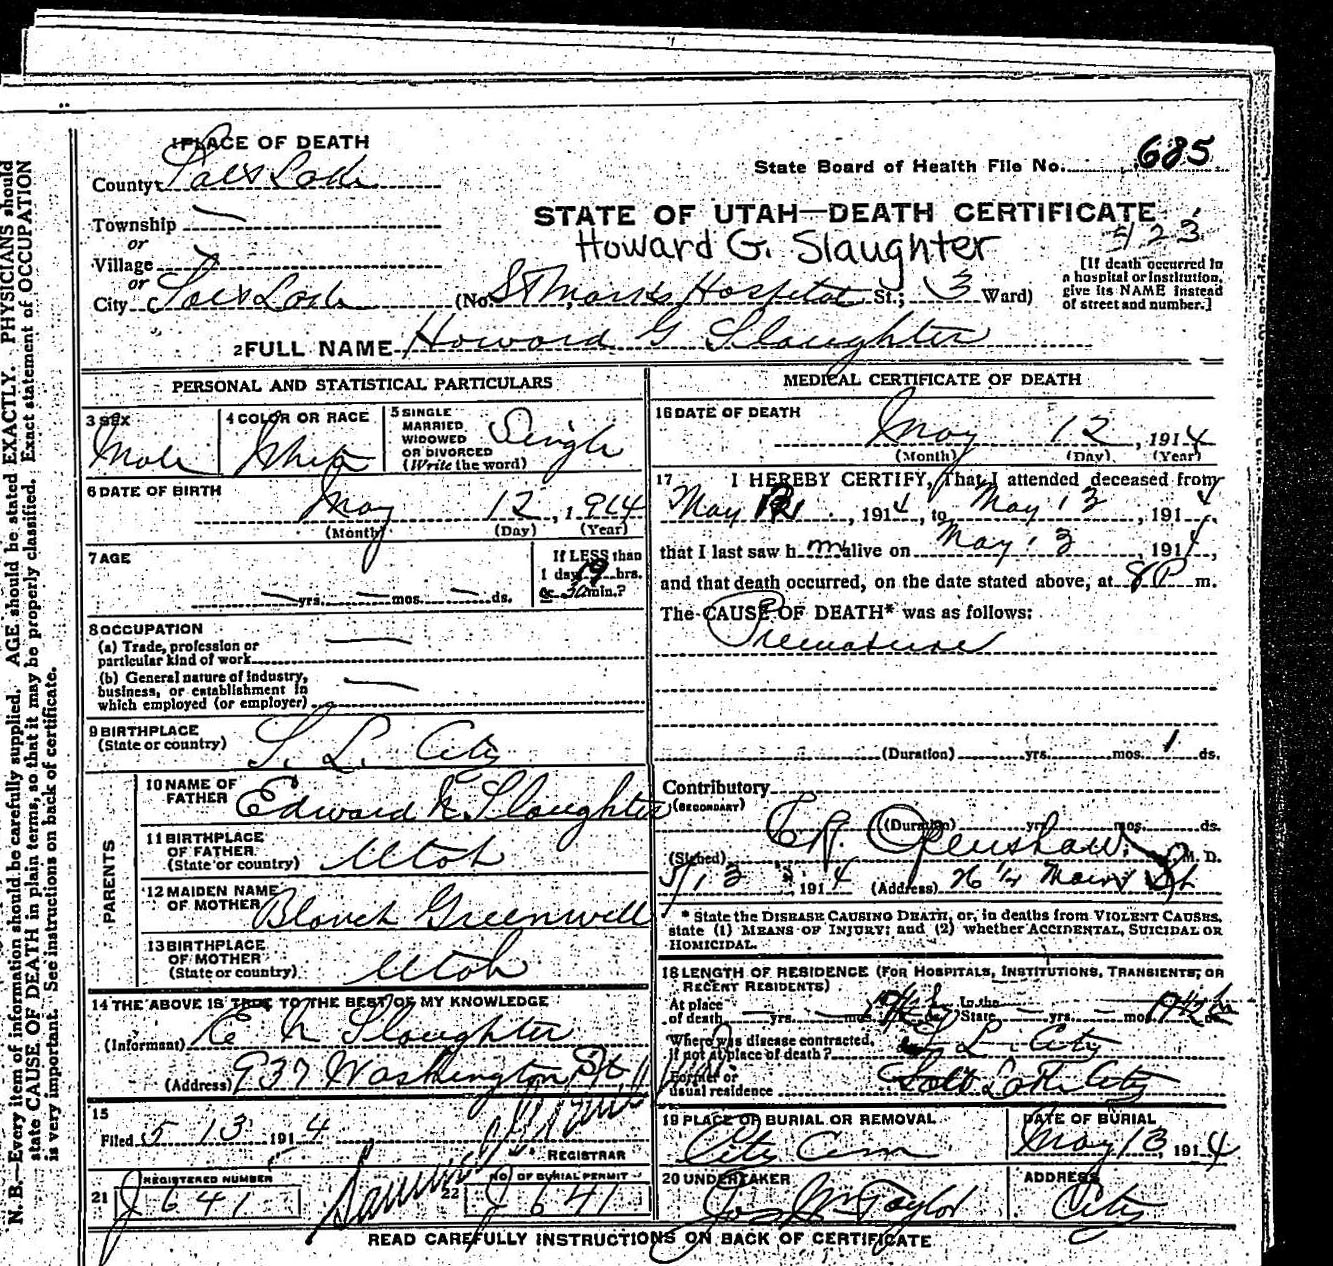 1 PLACE OF DEATH
County Salt Lake
State Board of Health File No. 685
Township —
or
Village
or
City Salt Lake
STATE OF UTAH—DEATH CERTIFICATE
Howard G. Slaughter
423
[If death occurred in
a hospital or institution,
give its NAME instead
of street and number.]
(No. St Marks Hospital St.; 3 Ward)
2 FULL NAME Howard G Slaughter
PERSONAL AND STATISTICAL PARTICULARS
3 SEX
Male
4 COLOR OR RACE
White
5 SINGLE
MARRIED
WIDOWED
OR DIVORCED
(Write the word)
Single
6 DATE OF BIRTH
May 12, 1914
(Month) (Day) (Year)
7 AGE
— yrs. — mos. — ds.
If LESS than
1 day 19 hrs.
or 30 min.?
8 OCCUPATION
(a) Trade, profession or
particular kind of work —
(b) General nature of industry,
business, or establishment in
which employed (or employer) —
9 BIRTHPLACE
(State or country) S. L. City
PARENTS
10 NAME OF
FATHER Edward K. Slaughter
11 BIRTHPLACE
OF FATHER
(State or country) Utah
12 MAIDEN NAME
OF MOTHER Blanch Greenwell
13 BIRTHPLACE
OF MOTHER
(State or country) Utah
14 THE ABOVE IS TRUE TO THE BEST OF MY KNOWLEDGE
(Informant) Slaughter
(Address) 937 Washington St.
15
Filed 5 13 1914
REGISTRAR
REGISTERED NUMBER
21 J 641
NO. OF BURIAL PERMIT
22 J 641
MEDICAL CERTIFICATE OF DEATH
16 DATE OF DEATH
May 12, 1914
(Month) (Day) (Year)
17 I HEREBY CERTIFY, That I attended deceased from
May 12, 1914, to May 13, 1914
that I last saw h im alive on May 13, 1914,
and that death occurred, on the date stated above, at 8 P m.
The CAUSE OF DEATH* was as follows:
Premature
(Duration) yrs. mos. 1 ds.
Contributory
(SECONDARY)
(Duration) yrs. mos. ds.
(Signed) C. R. Openshaw, M. D.
5/13, 1914 (Address) 76 1/2 Main St
* State the DISEASE CAUSING DEATH, or, in deaths from VIOLENT CAUSES,
state (1) MEANS OF INJURY; and (2) whether ACCIDENTAL, SUICIDAL OR
HOMICIDAL.
18 LENGTH OF RESIDENCE (FOR HOSPITALS, INSTITUTIONS, TRANSIENTS, OR
RECENT RESIDENTS)
At place
of death — yrs. — mos. ds. In the
State — yrs. — mos. 19 1/2 h
Where was disease contracted,
if not at place of death? S. L. City
Former or
usual residence Salt Lake City
19 PLACE OF BURIAL OR REMOVAL
City Cem
DATE OF BURIAL
May 13 1914
20 UNDERTAKER
Jos Wm Taylor
ADDRESS
City
READ CAREFULLY INSTRUCTIONS ON BACK OF CERTIFICATE
N. B.—Every item of information should be carefully supplied. AGE should be stated EXACTLY. PHYSICIANS should
state CAUSE OF DEATH in plain terms, so that it may be properly classified. Exact statement of OCCUPATION
is very important. See instructions on back of certificate.